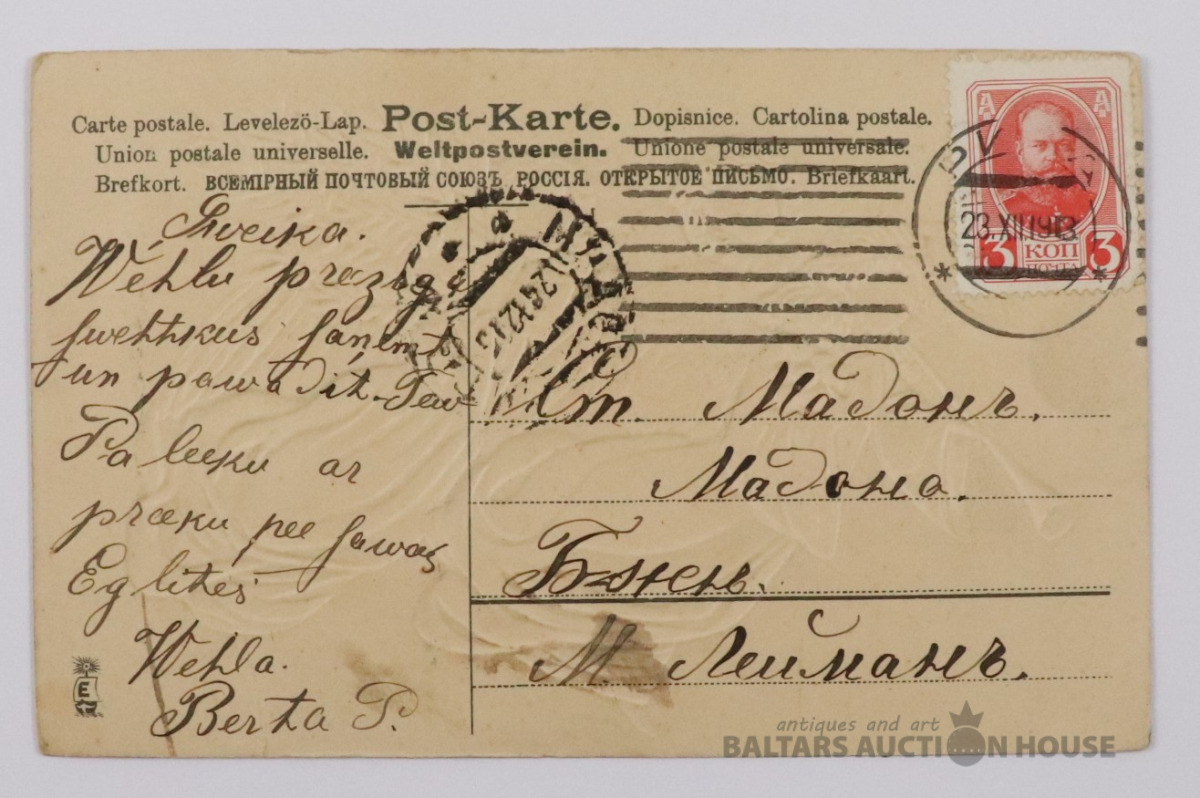 Carte postale. Levelező-Lap. Post-Karte. Dopisnice. Cartolina postale.
Union postale universelle. Weltpostverein. Unione postale universale.
Brefkort. ВСЕМІРНЫЙ ПОЧТОВЫЙ СОЮЗЪ. РОССІЯ. ОТКРЫТОЕ ПИСЬМО. Briefkaart.
Sweika.
Wehlu preezigs
swehtkus saņemt
un pawadit. Tew
Paleeku ar
preeku pee sawas
Eglites
Wehla.
Berta P.
23.XII.1913
3 КОП 3
ПОЧТА
Ст. Мадонъ.
Мадона.
Б-жнъ.
М. Лейманъ.
E
antiques and art
BALTARS AUCTION HOUSE